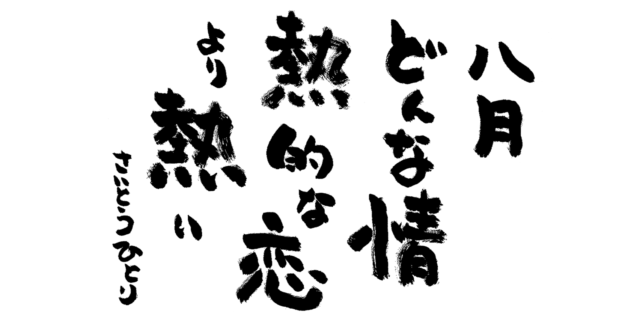 八月
どんな情
熱的な恋
より熱い
さいとうひとり